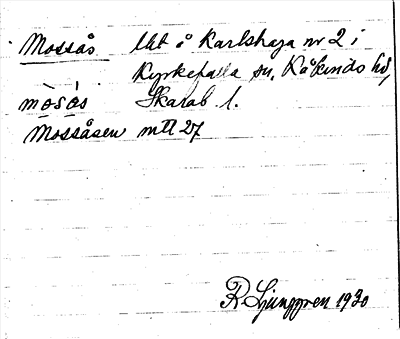 Mossås lht å Karlshaga nr 2 i
Kyrkefalla sn, Kåkinds hd,
mòsås Skarab. l.
Mossåsen mtl 27
R. Ljunggren 1930